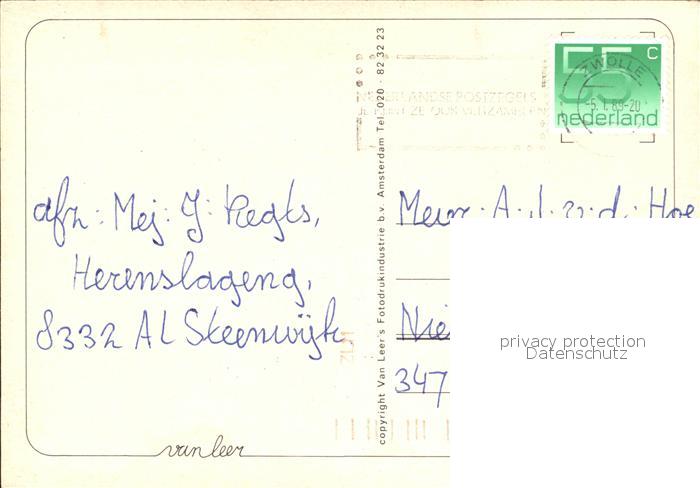 afz: Mej. J. Regts,
Herenslageng,
8332 AL Steenwijk
van leer
copyright Van Leer's Fotodrukindustrie b.v. Amsterdam Tel. 020 - 82 32 23
NEDERLANDSE POSTZEGELS
ZE OOK VERZAMELEN
55 c
nederland
ZWOLLE
-5.1.89-20
Mevr. A. J. v. d. Hoe
Nie
347
privacy protection
Datenschutz